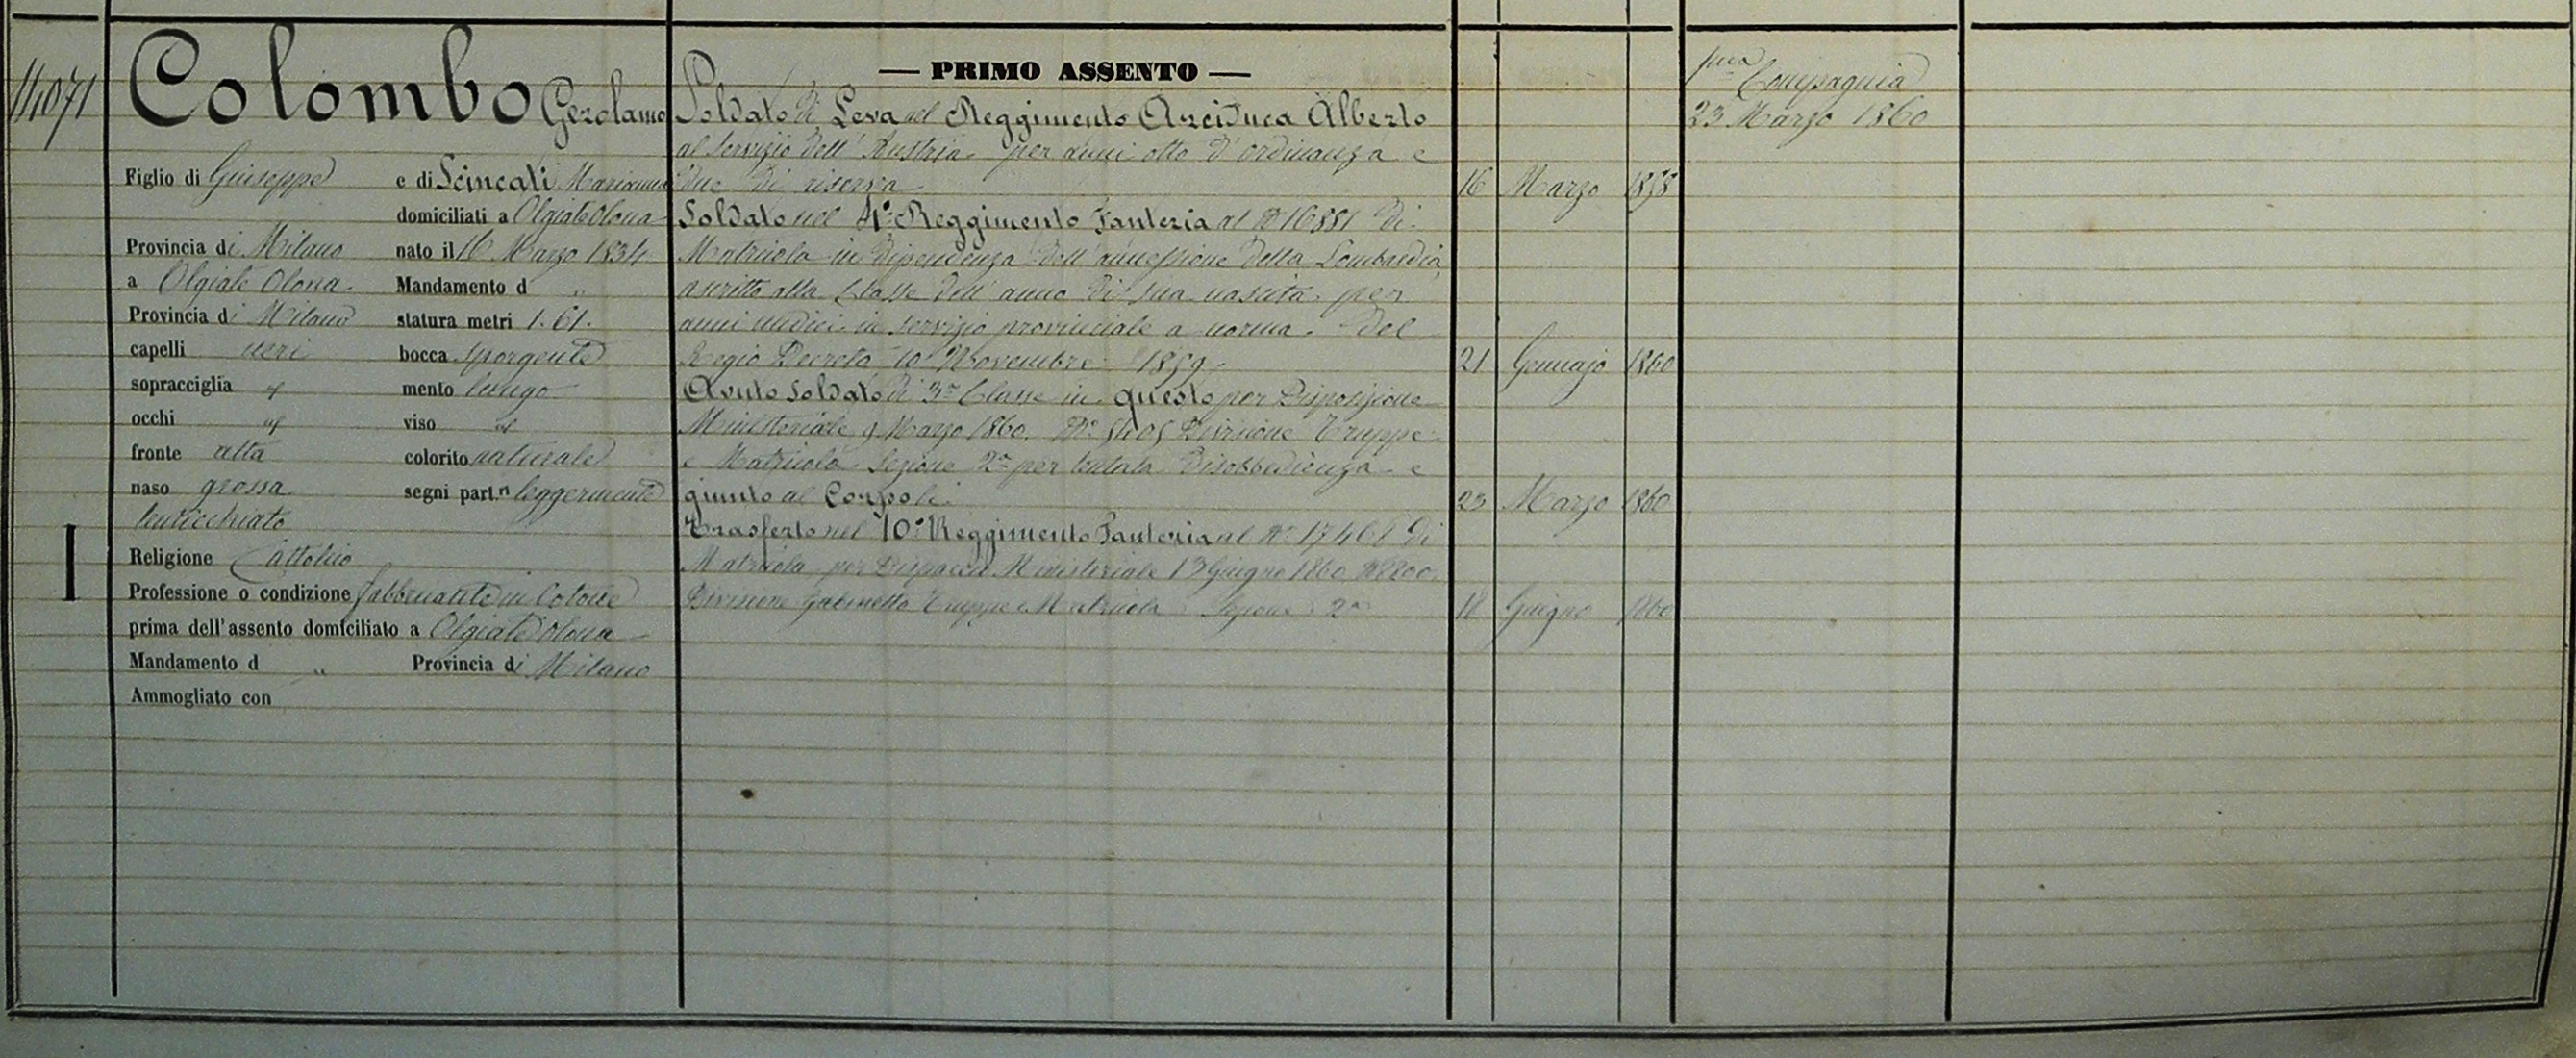 14071
Colombo Gerolamo
Figlio di Giuseppe e di Scincati Marianna
domiciliati a Olgiate Olona
Provincia di Milano nato il 16 Marzo 1834
a Olgiate Olona Mandamento d „
Provincia di Milano statura metri 1.61.
capelli neri bocca sporgente
sopracciglia " mento lungo
occhi " viso "
fronte alta colorito naturale
naso grossa segni part.ri leggermente
lenticchiato
I
Religione Cattolico
Professione o condizione fabbricante in Cotone
prima dell'assento domiciliato a Olgiate Olona
Mandamento d „ Provincia di Milano
Ammogliato con
— PRIMO ASSENTO —
Soldato di Leva nel Reggimento Arciduca Alberto
al Servizio dell'Austria per anni otto d'ordinanza e
due di riserva 16 Marzo 1858
Soldato nel 4° Reggimento Fanteria al N° 16881 di
Matricola in dipendenza dell'annessione della Lombardia
ascritto alla Classe dell'anno di sua nascita per
anni undici in servizio provinciale a norma del
Regio Decreto 10 Novembre 1859 21 Gennajo 1860
Avuto Soldato di 3a Classe in questo per Disposizione
Ministeriale 9 Marzo 1860. N° 5405 Divisione Truppe
e Matricola Sezione 2a per tentata disobbedienza e
giunto al Corpo li 23 Marzo 1860
Trasferto nel 10° Reggimento Fanteria al N° 17461 di
Matricola per Dispaccio Ministeriale 13 Giugno 1860 N 8200
Divisione Gabinetto Truppe e Matricola Sezione 2a 18 Giugno 1860
Compagnia
23 Marzo 1860